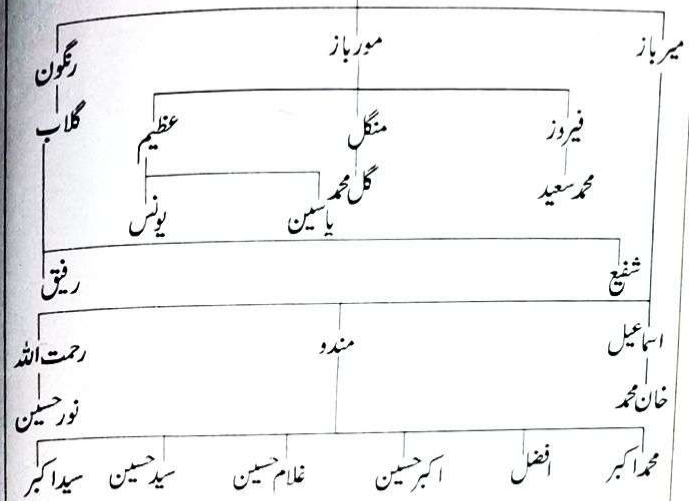 میر باز مور باز رنگون
گلاب
فیروز منگل عظیم
محمد سعید گل محمد
یاسین یونس
شفیع رفیق
اسماعیل مندو رحمت اللہ
خان محمد نور حسین
محمد اکبر افضل اکبر حسین غلام حسین سید حسین سید اکبر